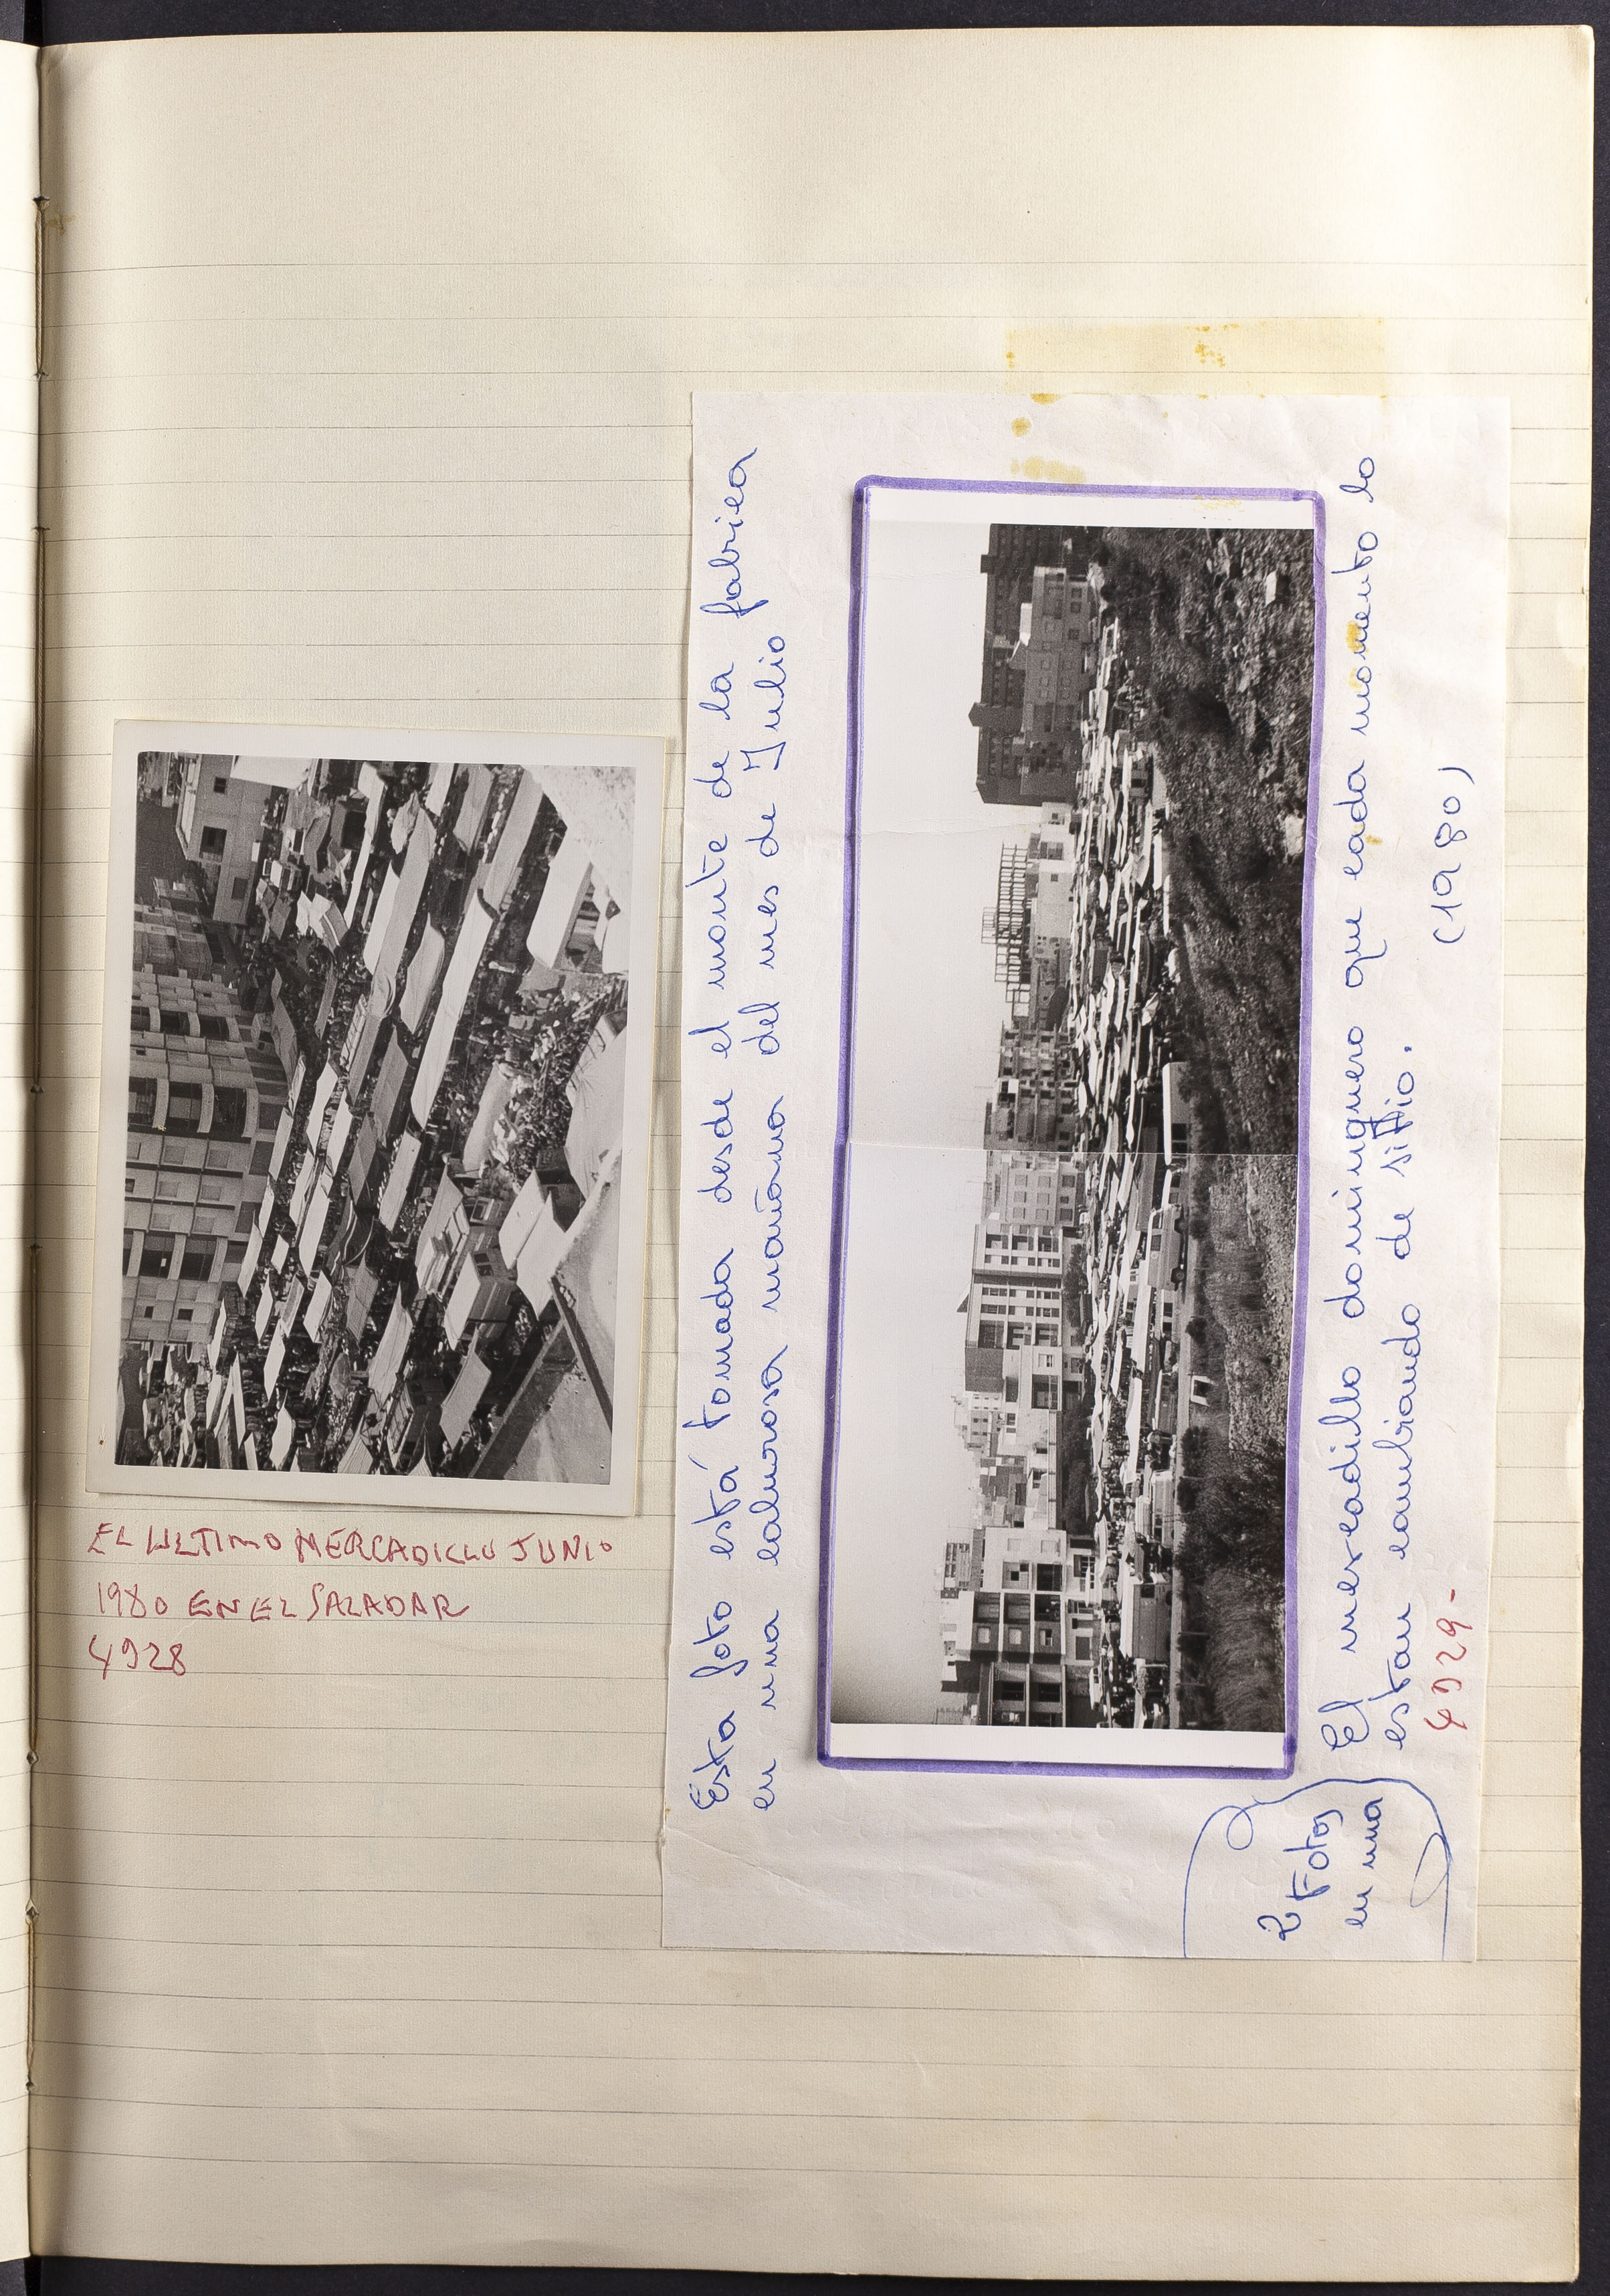 EL ULTIMO MERCADILLO JUNIO
1980 EN EL SALADAR
4928
Esta foto está tomada desde el monte de la fabrica
en una calurosa mañana del mes de Julio
El mercadillo dominguero que cada momento lo
estan cambiando de sitio.
(1980)
4929-
2 Fotos
en una